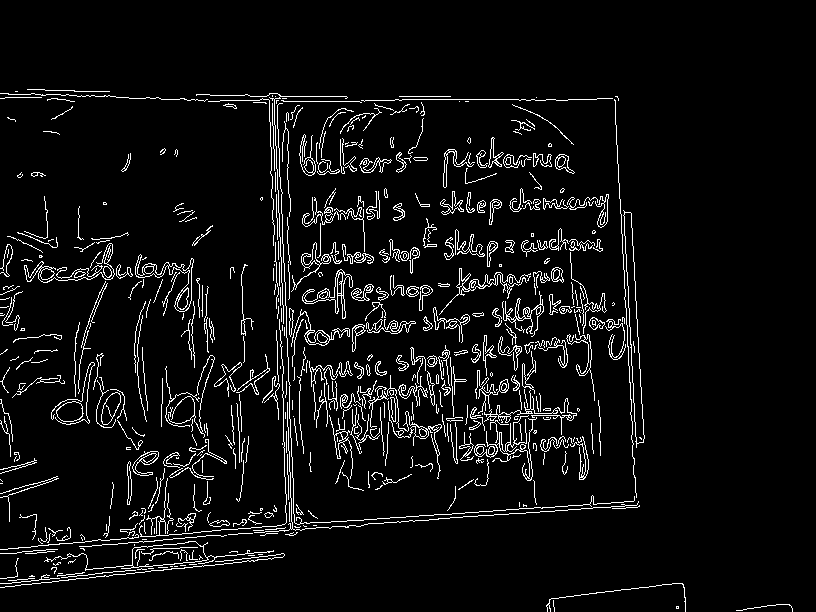 vocabulary
do
jest
xxx
baker's - piekarnia
chemist's - sklep chemiczny
clothes shop - sklep z ciuchami
coffee shop - kawiarnia
computer shop - sklep kompu-
music shop - sklep muzyczny
newsagent's - kiosk
pet shop - sklep
zoologiczny